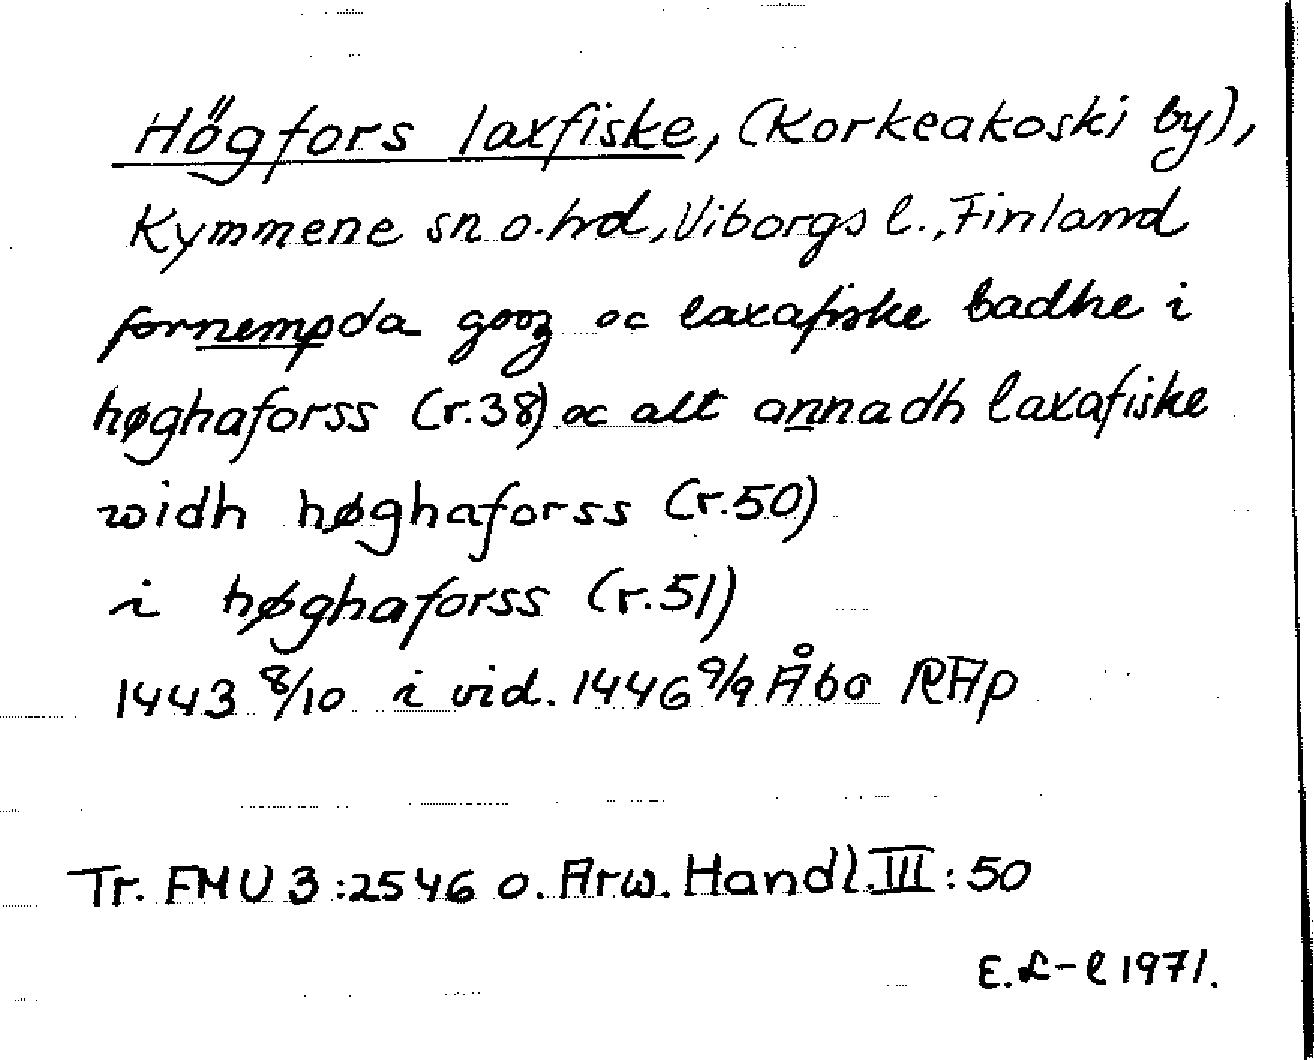 Högfors laxfiske, (Korkeakoski by),
Kymmene sn o. hd, Viborgs l., Finland
fornempda gooz oc laxafiske badhe i
høghaforss (r.38) oc alt annadh laxafiske
widh høghaforss (r.50)
i høghaforss (r.51)
1443 8/10 i vid. 1446 9/9 Åbo RAp
Tr. FMU 3:2546 o. Arw. Handl III:50
E.L-l 1971.